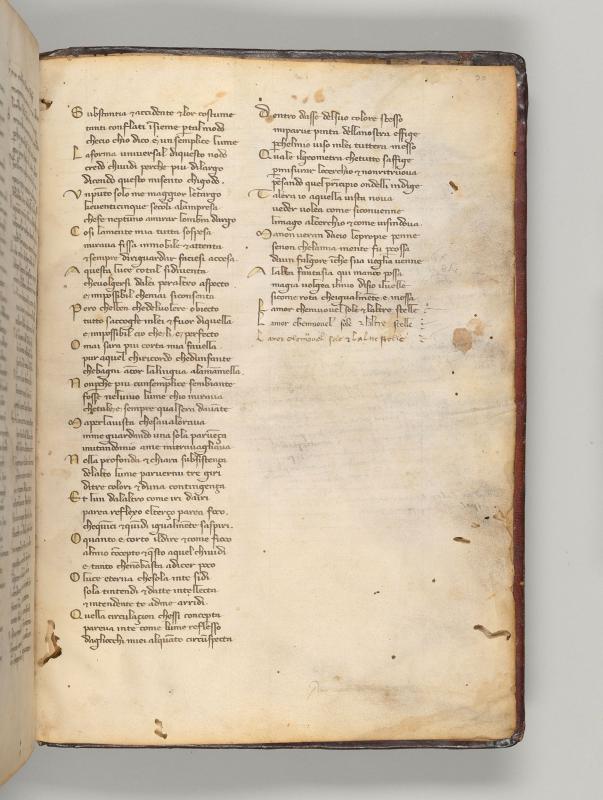 Substantia & accidente & lor costume
tanti conflati īsieme ptal modo
checio chio dico e unsemplice lume
La forma universal diquesto nodo
credo chividi perche piu dilargo
dicendo questo misento chigodo.
Un punto solo me maggior letargo
cheventicinque secoli alampresa
chefe neptuno amirar lombra dargo
Cosi lamente mia tutta sospesa
mirava fissa immobile & attenta
& sempre diriguardar faciesi accesa.
A questa luce cotal sidiventa
chevolgersi dalei peraltro aspecto
e impossibil chemai siconsenta
Pero chelben chedelvolere obiecto
tutto saccoglie inlei & fuor diquella
e impossibil cio cheli e perfecto
Omai sara piu corta mia favella
pur aquel chiricordo chedinfante
chebagni ācor lalingua alamāmella.
Nonpche piu cunsemplice sembiante
fosse nelvivo lume chio mirava
chetale e sempre qualsera davāte
Maperlavista chesavalorava
inme guardando una sola parvēça
mutandomio ame mitravagliava
Nella profonda & chiara subsistença
delalto lume parvermi tre giri
ditre colori & duna contingença
Et lun dalaltro come iri dairi
parea reflexo elterço parea foco.
chequīci & quīdi igualmēte saspiri.
O quanto e corto ildire & come fioco
almio cōcepto & qsto aquel chividi
e tanto chenōbasta adicer poco
O luce eterna chesola inte sidi
sola tintendi & datte intellecta
& intendente te adme arridi.
Quella circulaçion chessi concepta
pareva inte come lume reflesso
daglocchi miei alquāto circūspecta
Dentro dasse delsuo colore stesso
miparve pinta dellanostra effige
pchelmio viso inlei tuttera messo
Quale ilgeometra chetutto saffige
pmisurar locerchio & nonritruova
pēsando quel prīcipio ondelli indige
Talera io aquella vista nova
veder volea come siconvenne
limago alcerchio & come visindova
Manonieran dacio leproprie penne
senon chelamia mente fu pcossa
daun fulgore īche sua voglia venne
A lalta fantasia qui manco possa
magia volgea ilmio disio ilvelle
sicome rota cheigualmēte e mossa
Lamor chemuovel sole & laltre stelle
Lamor chemovel sole & laltre stelle
Lamor chemovel sole & laltre stelle